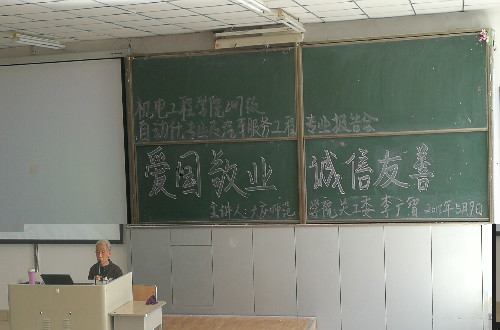 机电工程学院2017级
自动化专业及汽车服务工程专业报告会
爱国 敬业 诚信友善
主讲人: 学院关工委 李广贺 2017年5月9日